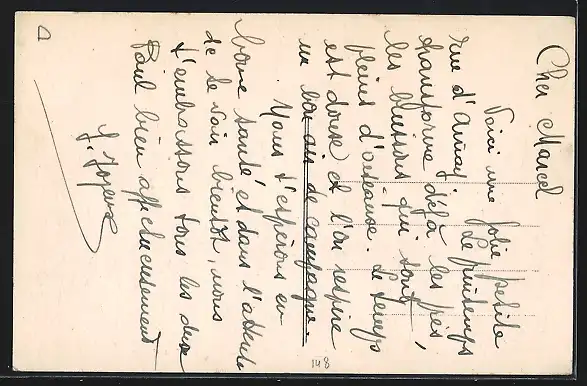 Cher Marcel
Voici une jolie petite
vue d'Aunay. Le printemps
transforme déjà les prés,
les buissons qui sont
pleins d'oiseaux. Le temps
est doux et l'on respire
un bon air de campagne.
Nous t'espérons en
bonne santé et dans l'attente
de te voir bientôt, nous
t'embrassons tous les deux
Paul bien affectueusement
G. Joyeux
148